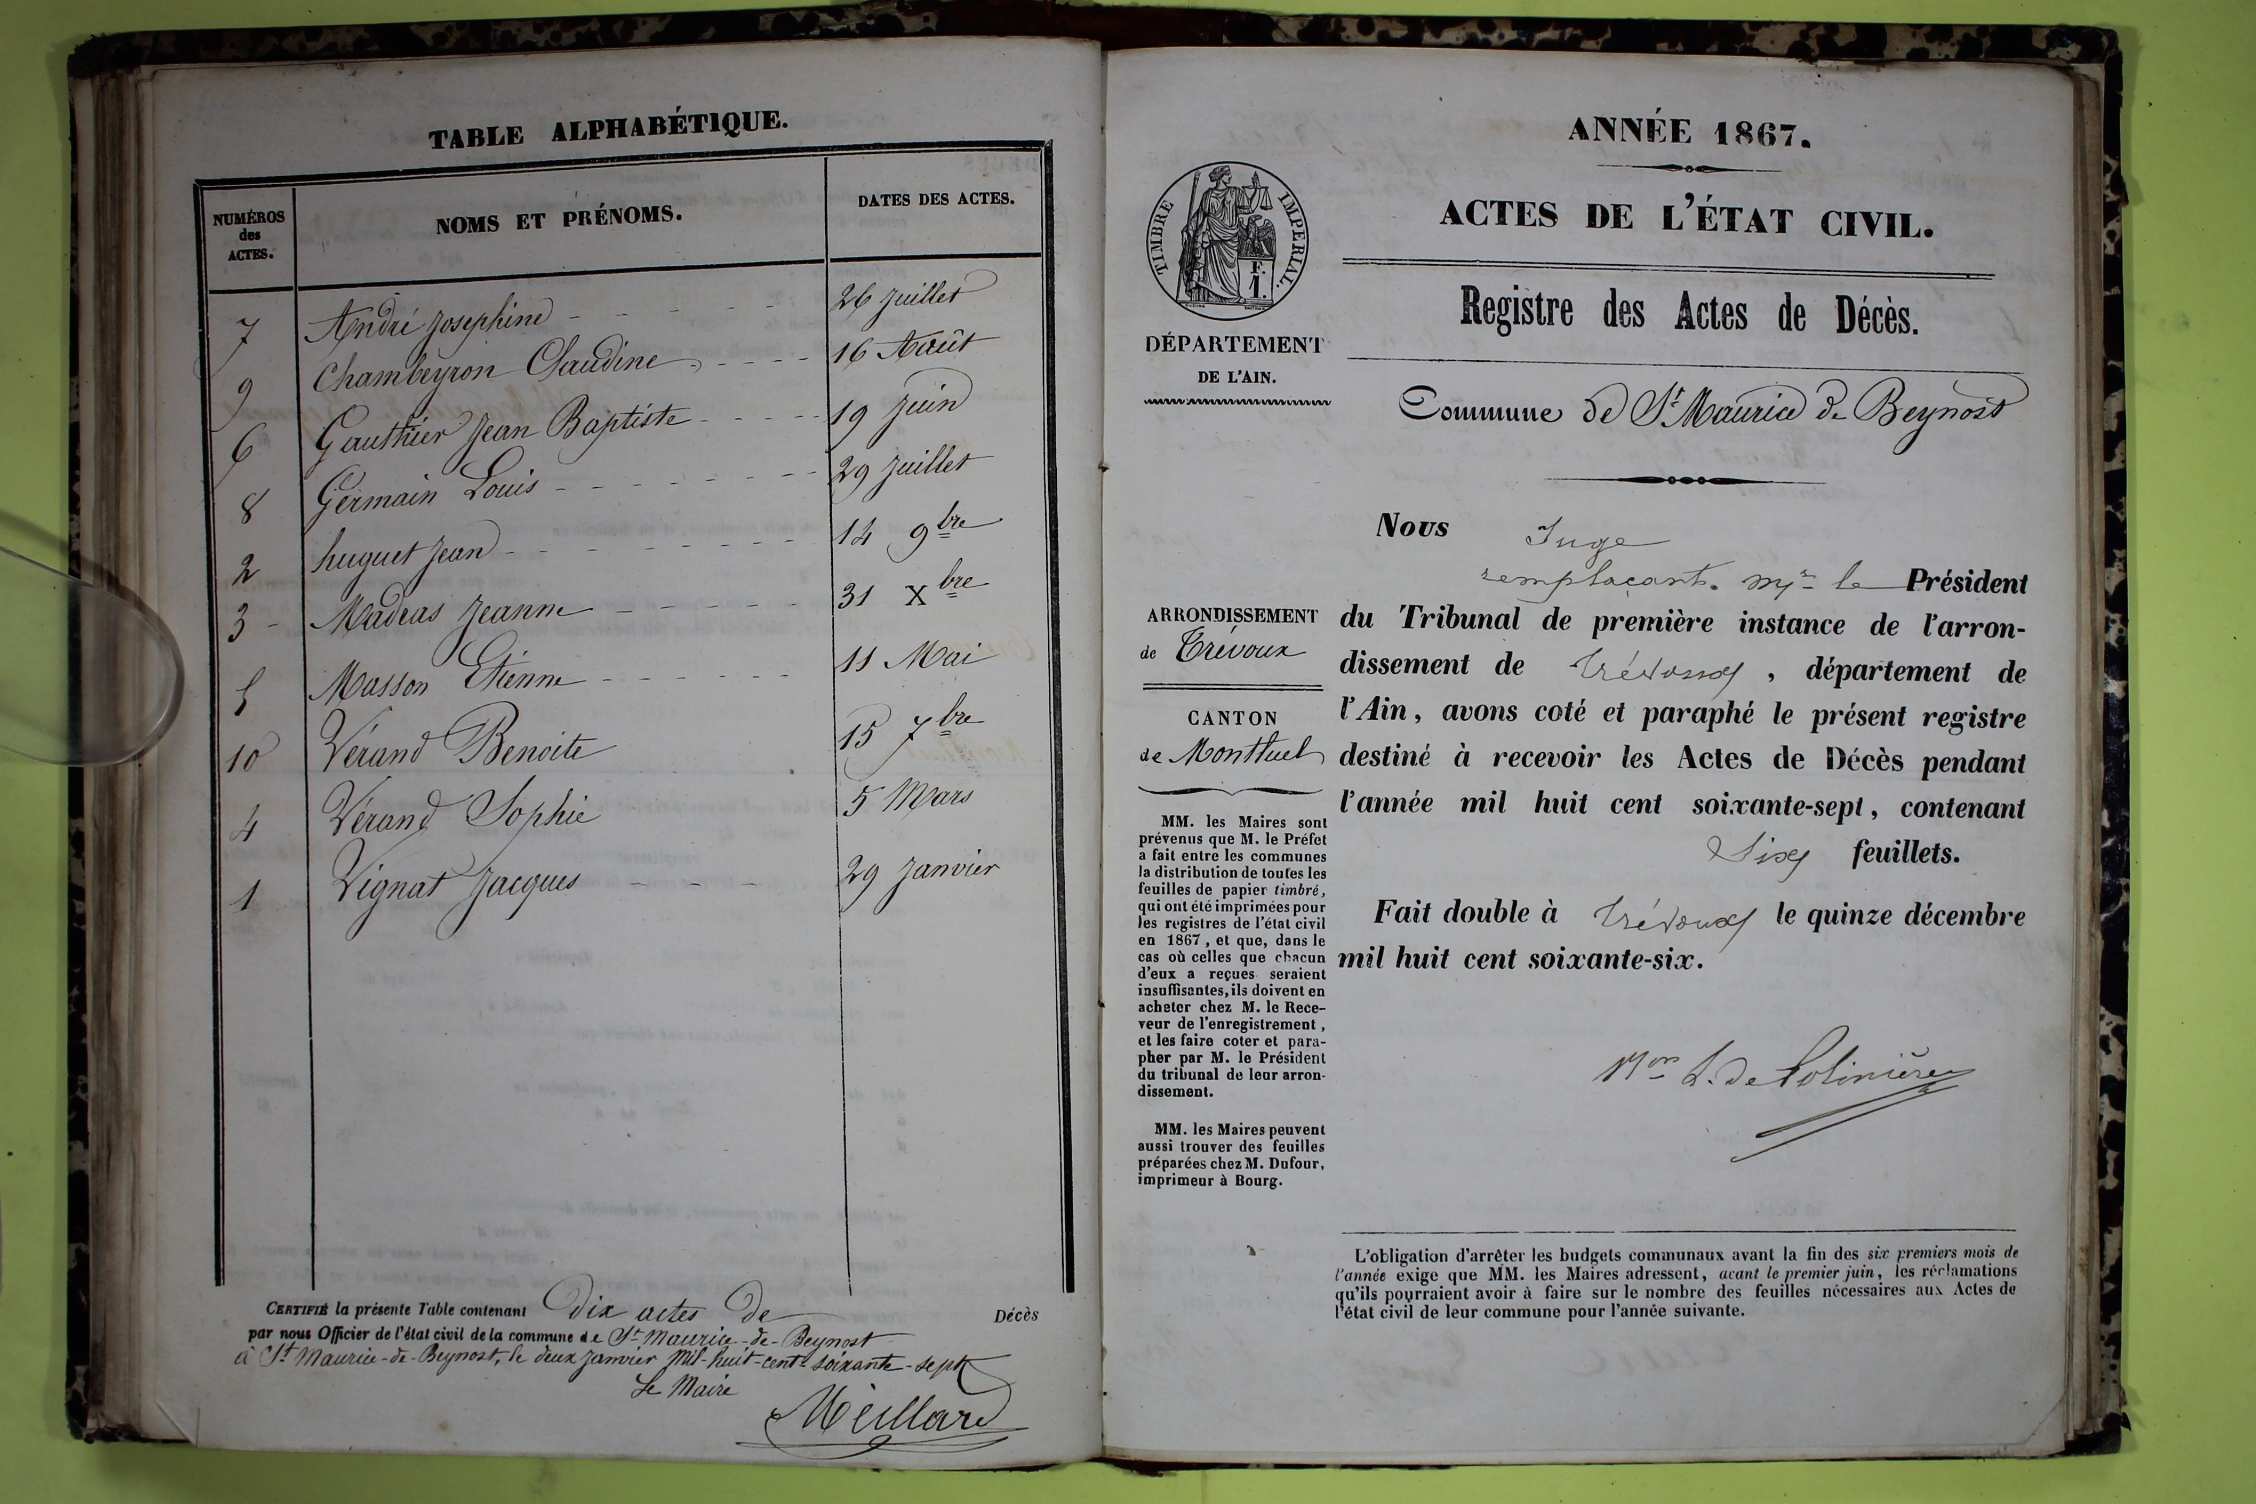 TABLE ALPHABÉTIQUE.
NUMÉROS
des
ACTES.
NOMS ET PRÉNOMS.
DATES DES ACTES.
7 André Josephine 26 Juillet
9 Chambeyron Claudine 16 Août
6 Gauthier Jean Baptiste 19 Juin
8 Germain Louis 29 Juillet
2 huguet Jean 14 9bre
3 Madeas Jeanne 31 Xbre
5 Masson Etienne 11 Mai
10 Vérand Benoite 15 7bre
4 Vérand Sophie 5 Mars
1 Vignat Jacques 29 Janvier
CERTIFIÉ la présente Table contenant Dix actes de Décès
par nous Officier de l'état civil de la commune de St Maurice-de-Beynost
à St Maurice-de-Beynost, le deux Janvier Mil-huit-cent-soixante-sept
Le Maire
Meillard
ANNÉE 1867.
TIMBRE IMPERIAL.
F.
1.
ACTES DE L'ÉTAT CIVIL.
Registre des Actes de Décès.
DÉPARTEMENT
DE L'AIN.
Commune de St Maurice de Beynost
ARRONDISSEMENT
de Trévoux
CANTON
de Montluel
MM. les Maires sont
prévenus que M. le Préfet
a fait entre les communes
la distribution de toutes les
feuilles de papier timbré,
qui ont été imprimées pour
les registres de l'état civil
en 1867, et que, dans le
cas où celles que chacun
d'eux a reçues seraient
insuffisantes, ils doivent en
acheter chez M. le Rece-
veur de l'enregistrement,
et les faire coter et para-
pher par M. le Président
du tribunal de leur arron-
dissement.
MM. les Maires peuvent
aussi trouver des feuilles
préparées chez M. Dufour,
imprimeur à Bourg.
Nous Juge
remplaçant Mr le Président
du Tribunal de première instance de l'arron-
dissement de Trévoux, département de
l'Ain, avons coté et paraphé le présent registre
destiné à recevoir les Actes de Décès pendant
l'année mil huit cent soixante-sept, contenant
Six feuillets.
Fait double à Trévoux le quinze décembre
mil huit cent soixante-six.
L. de Poliniére
L'obligation d'arrêter les budgets communaux avant la fin des six premiers mois de
l'année exige que MM. les Maires adressent, avant le premier juin, les réclamations
qu'ils pourraient avoir à faire sur le nombre des feuilles nécessaires aux Actes de
l'état civil de leur commune pour l'année suivante.